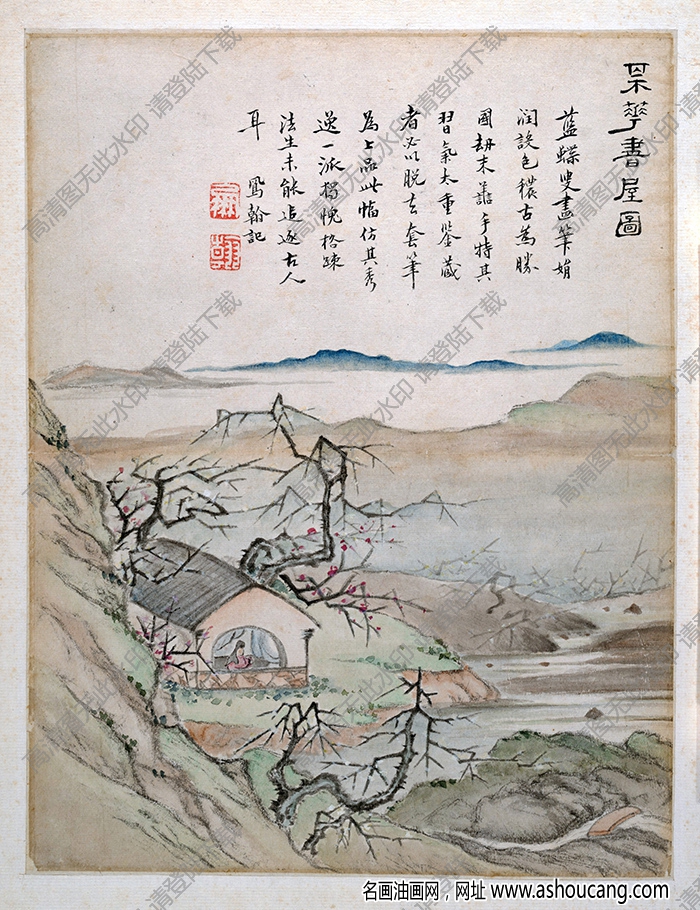 華書屋圖
藍蝶叟畫筆娟
潤設色穠古為勝
國末手特其
習氣太重鑒藏
者必以脫去套筆
為上品此幅仿其秀
逸一派獨愧格疎
法生未能追逐古人
耳 鳳翰記
高清图无此水印 请登陆下载
名画油画网，网址 www.ashoucang.com